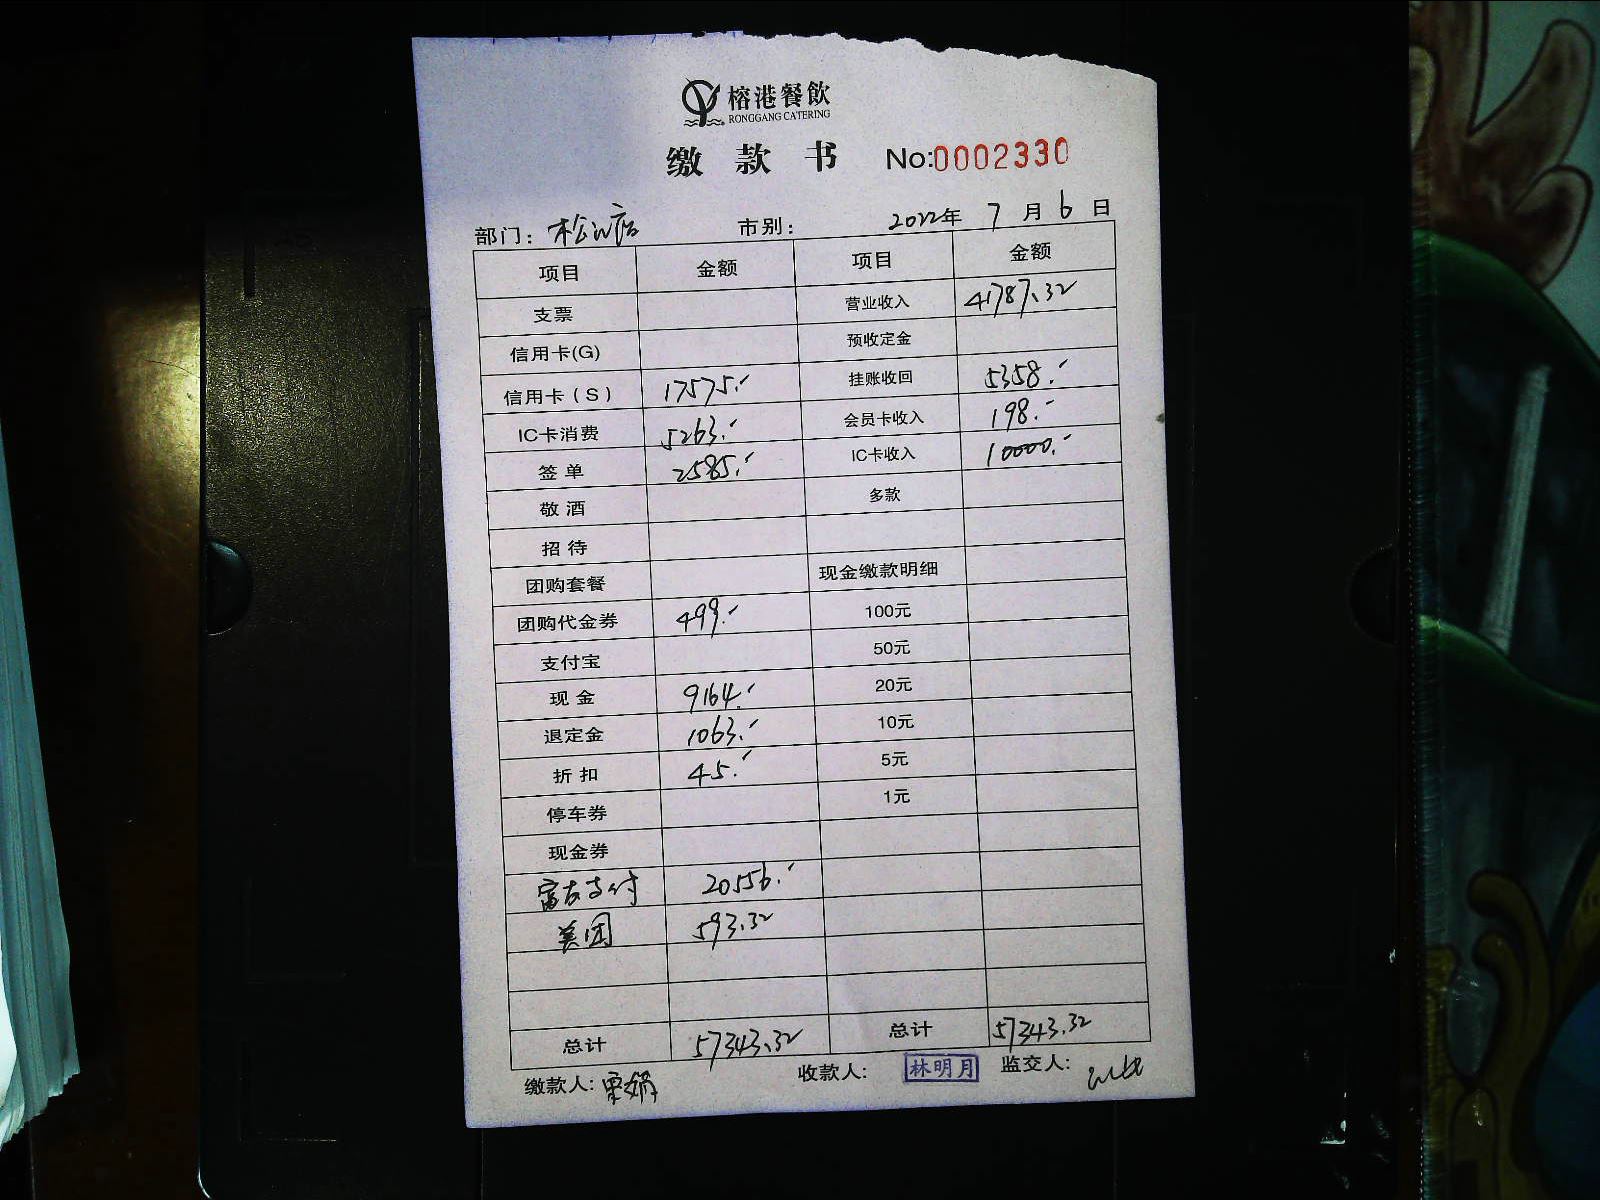 榕港餐飲
RONGGANG CATERING
缴款书 No:0002330
部门：松江店 市别： 2022年 7月 6日
项目 金额 项目 金额
支票 营业收入 41787.32
信用卡(G) 预收定金
信用卡（S） 17575.- 挂账收回 5358.-
IC卡消费 5263.- 会员卡收入 198.-
签单 2585.- IC卡收入 10000.-
敬酒 多款
招待
团购套餐 现金缴款明细
团购代金券 499.- 100元
支付宝 50元
现金 9164.- 20元
退定金 1063.- 10元
折扣 45.- 5元
停车券 1元
现金券
富友支付 20556.-
美团 593.32
总计 57343.32 总计 57343.32
缴款人：栗娟 收款人：林明月 监交人：